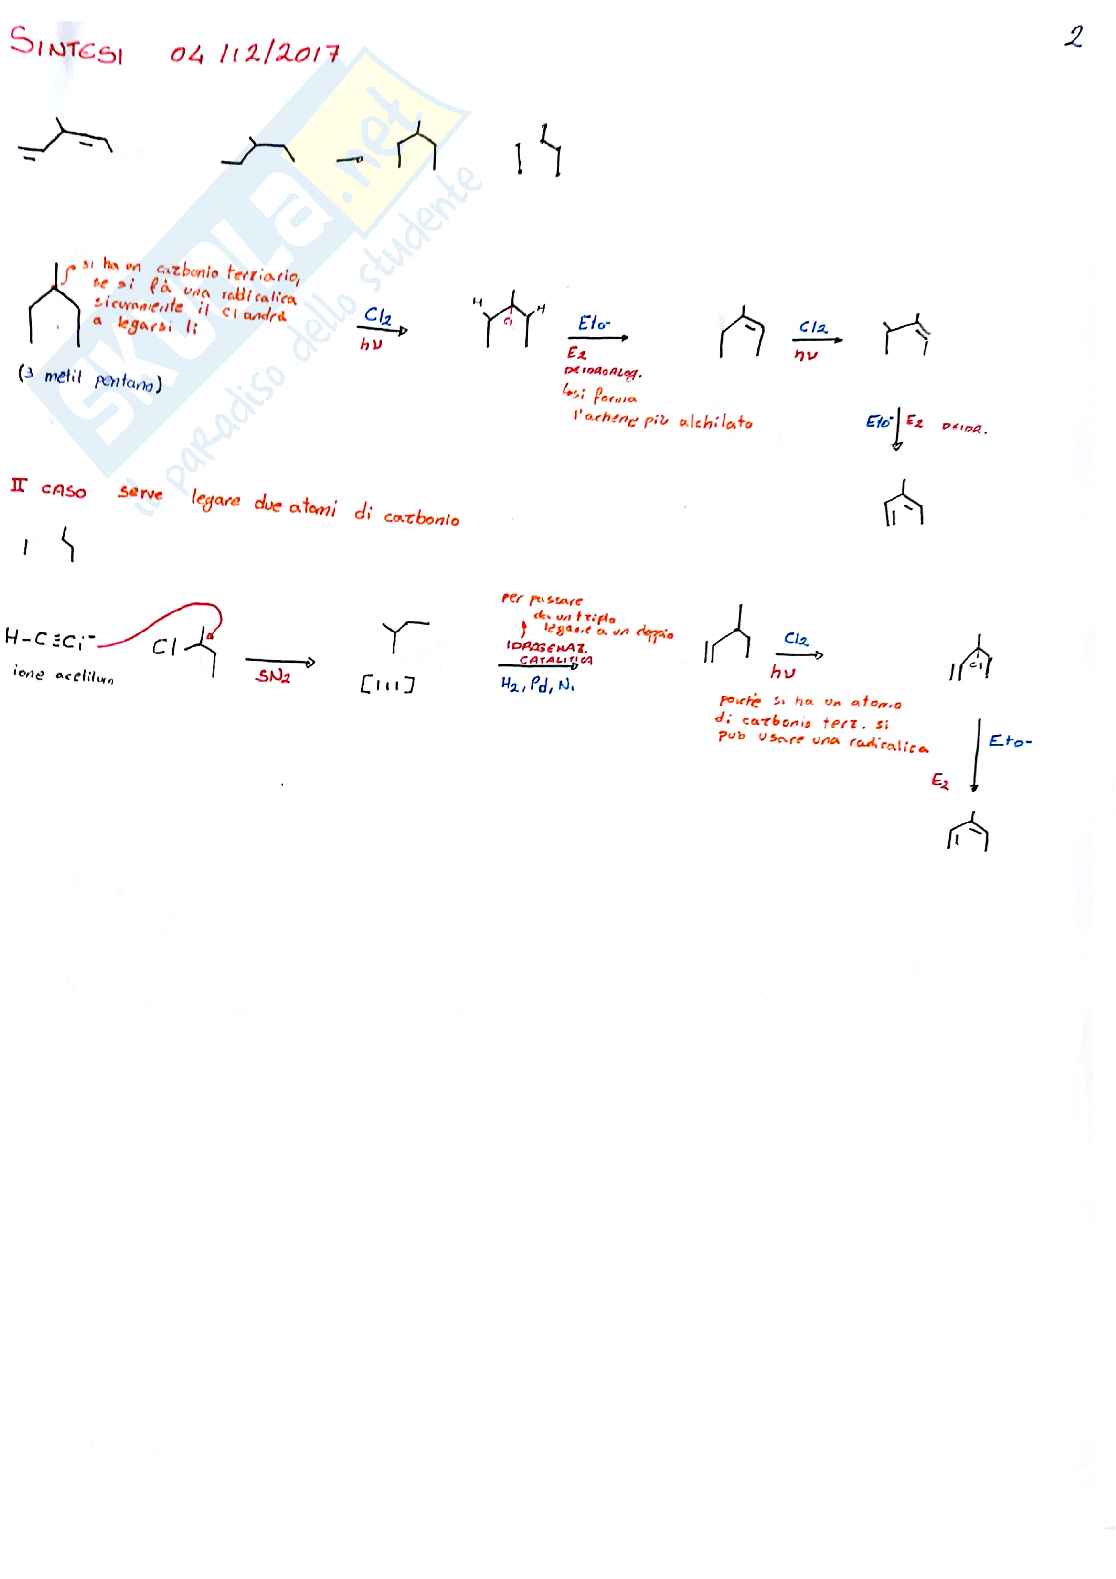 SINTESI 04/12/2017
2
SKUOLA.net
il paradiso dello studente
si ha un carbonio terziario,
se si fà una radicalica
sicuramente il Cl andrà
a legarsi lì
(3 metil pentano)
Cl2
hν
H
H
Cl
Eto-
E2
DEIDROALOG.
si forma
l'achene più alchilato
Cl2
hν
Eto-
E2 DEIDR.
II CASO serve legare due atomi di carbonio
H-C≡C:-
ione acetiluro
Cl
SN2
[III]
per passare
da un triplo
legame a un doppio
IDROGENAZ.
CATALITICA
H2, Pd, Ni
Cl2
hν
poichè si ha un atomo
di carbonio terz. si
può usare una radicalica
Cl
Eto-
E2